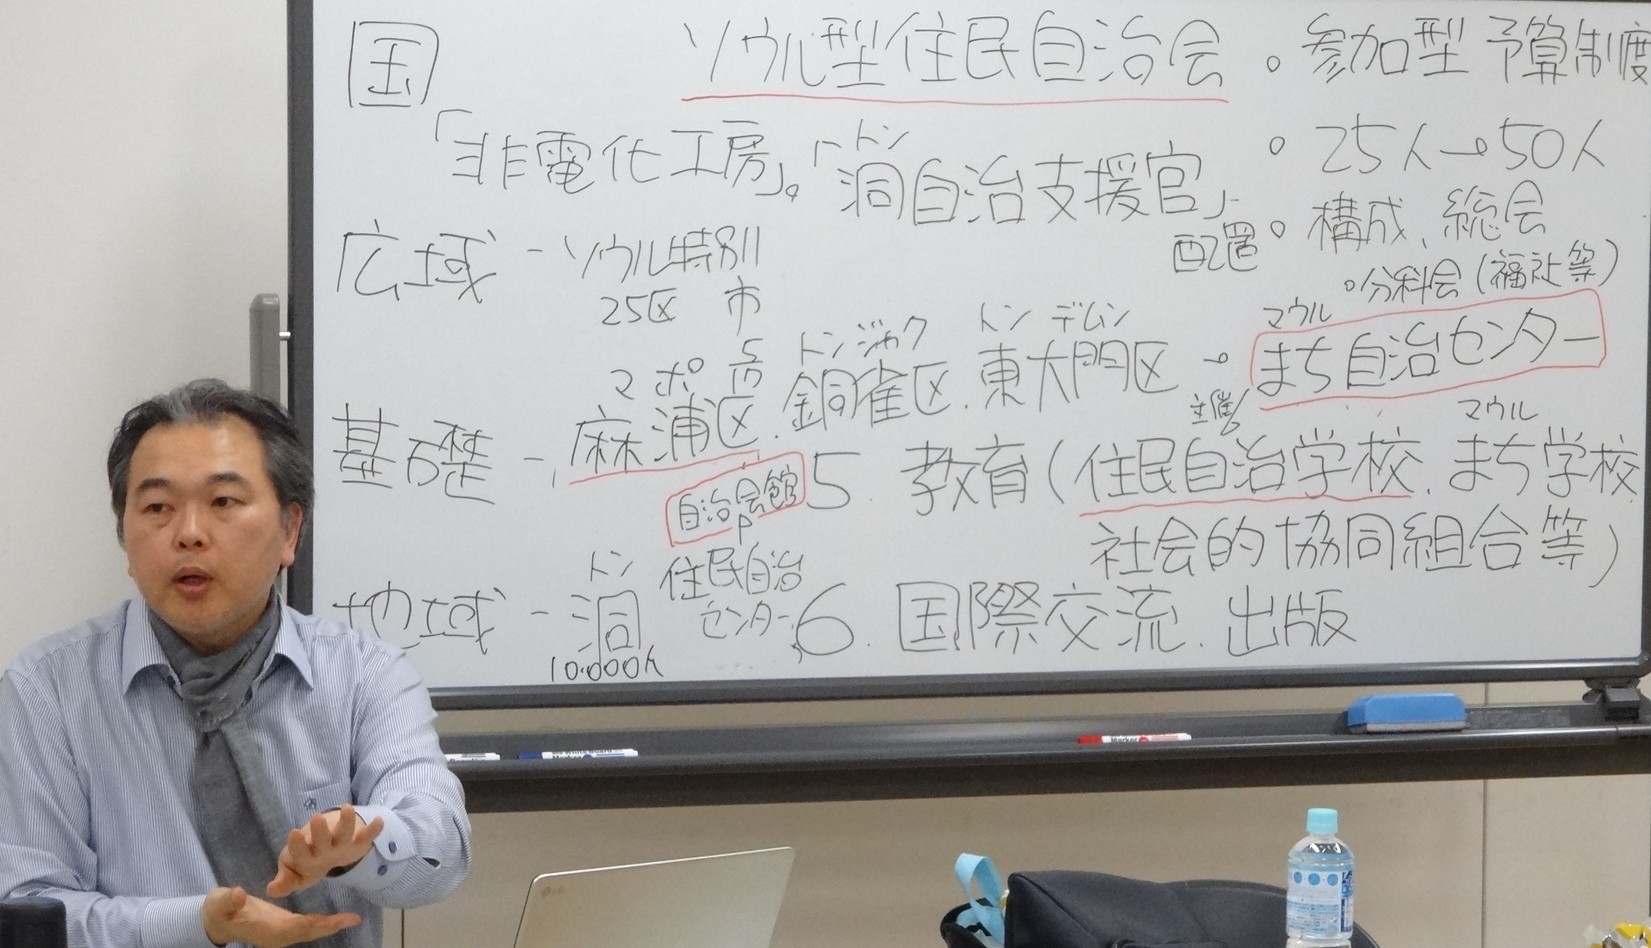 国
ソウル型住民自治会
。参加型 予算制度
「非電化工房」。「洞自治支援官」
トン
配置
。25人→50人
。構成、総会
。分科会(福祉等)
広域 - ソウル特別市
25区
マポ
麻浦区.銅雀区.東大門区→まち自治センター
トンジャク
トンデムン
マウル
基礎 -
自治会館
5. 教育(住民自治学校.まち学校
主催
マウル
社会的協同組合等)
地域 - 洞
トン
10.000人
住民自治センター
6. 国際交流.出版
LG
Marker